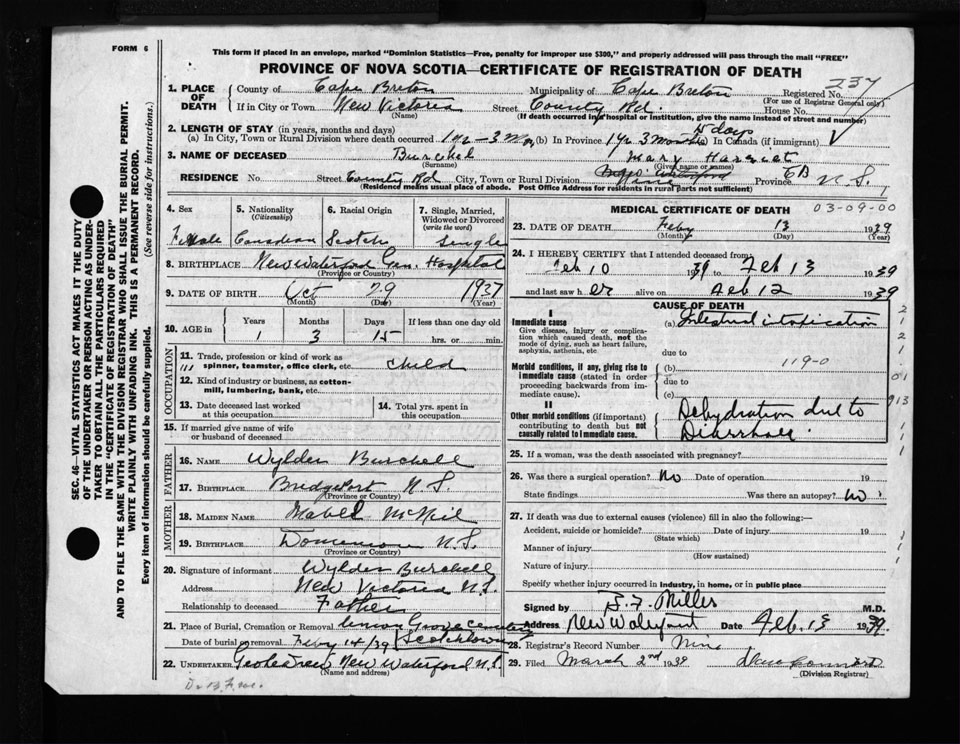 FORM 6
This form if placed in an envelope, marked "Dominion Statistics—Free, penalty for improper use $300," and properly addressed will pass through the mail "FREE"
PROVINCE OF NOVA SCOTIA—CERTIFICATE OF REGISTRATION OF DEATH
237
1. PLACE OF DEATH
County of Cape Breton Municipality of Cape Breton Registered No.
(For use of Registrar General only)
If in City or Town New Victoria Street County Rd. House No.
(Name) (If death occurred in hospital or institution, give the name instead of street and number)
2. LENGTH OF STAY (in years, months and days)
(a) In City, Town or Rural Division where death occurred 1yr-3Mo (b) In Province 1yr 3 months 15 days (c) In Canada (if immigrant)
3. NAME OF DECEASED Burchel Mary Harriet
(Surname) (Given name or names)
RESIDENCE No. Street County Rd City, Town or Rural Division Nine Province CB N.S.
(Residence means usual place of abode. Post Office Address for residents in rural parts not sufficient)
4. Sex 5. Nationality (Citizenship) 6. Racial Origin 7. Single, Married, Widowed or Divorced (write the word)
Female Canadian Scotch Single
8. BIRTHPLACE New Waterford Gen. Hospital
(Province or Country)
9. DATE OF BIRTH Oct 29 1937
(Month) (Day) (Year)
10. AGE in Years Months Days If less than one day old
1 3 15 hrs. or min.
OCCUPATION
11. Trade, profession or kind of work as spinner, teamster, office clerk, etc. Child
12. Kind of industry or business, as cotton-mill, lumbering, bank, etc.
13. Date deceased last worked at this occupation 14. Total yrs. spent in this occupation
15. If married give name of wife or husband of deceased
FATHER
16. NAME Wylden Burchell
17. BIRTHPLACE Bridgeport N.S.
(Province or Country)
MOTHER
18. MAIDEN NAME Mabel McNeil
19. BIRTHPLACE Dominion N.S.
(Province or Country)
20. Signature of informant Wylden Burchell
Address New Victoria N.S.
Relationship to deceased Father
21. Place of Burial, Cremation or Removal Union Grove Cemetery
Date of burial or removal Feby 14/39 Scotchtown
22. UNDERTAKER New Waterford N.S.
(Name and address)
MEDICAL CERTIFICATE OF DEATH 03-09-00
23. DATE OF DEATH Feby 13 1939
(Month) (Day) (Year)
24. I HEREBY CERTIFY that I attended deceased from:
Feb 10 1939 to Feb 13 1939
and last saw her alive on Feb 12 1939
CAUSE OF DEATH
I
Immediate cause (a) Intestinal intoxication
Give disease, injury or complication which caused death, not the mode of dying, such as heart failure, asphyxia, asthenia, etc
due to
Morbid conditions, if any, giving rise to immediate cause (stated in order proceeding backwards from immediate cause) (b) 119-0
due to
(c)
II
Other morbid conditions (if important) contributing to death but not causally related to immediate cause. Dehydration due to Diarrhoea.
25. If a woman, was the death associated with pregnancy?
26. Was there a surgical operation? No Date of operation 19
State findings Was there an autopsy? No
27. If death was due to external causes (violence) fill in also the following:—
Accident, suicide or homicide? Date of injury 19
(State which)
Manner of injury
(How sustained)
Nature of injury
Specify whether injury occurred in industry, in home, or in public place
Signed by J. F. Miller M.D.
Address New Waterford Date Feb. 13 1939.
28. Registrar's Record Number Nine
29. Filed March 2nd 1939
(Division Registrar)
SEC. 46—VITAL STATISTICS ACT MAKES IT THE DUTY
OF THE UNDERTAKER OR PERSON ACTING AS UNDERTAKER TO OBTAIN ALL THE PARTICULARS REQUIRED
IN THE "CERTIFICATE OF REGISTRATION OF DEATH"
AND TO FILE THE SAME WITH THE DIVISION REGISTRAR WHO SHALL ISSUE THE BURIAL PERMIT.
WRITE PLAINLY WITH UNFADING INK. THIS IS A PERMANENT RECORD.
Every item of information should be carefully supplied. (See reverse side for instructions.)